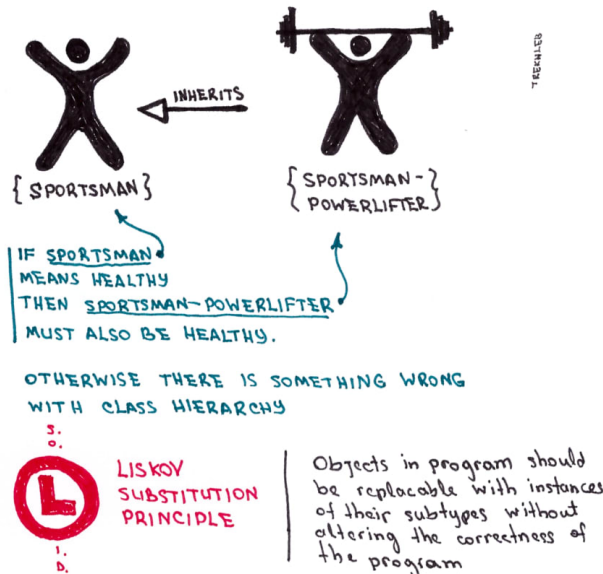 INHERITS
{ SPORTSMAN }
{ SPORTSMAN-
POWERLIFTER }
IF SPORTSMAN
MEANS HEALTHY
THEN SPORTSMAN-POWERLIFTER
MUST ALSO BE HEALTHY.
OTHERWISE THERE IS SOMETHING WRONG
WITH CLASS HIERARCHY
S.
O.
L
I.
D.
LISKOV
SUBSTITUTION
PRINCIPLE
Objects in program should
be replacable with instances
of their subtypes without
altering the correctness of
the program